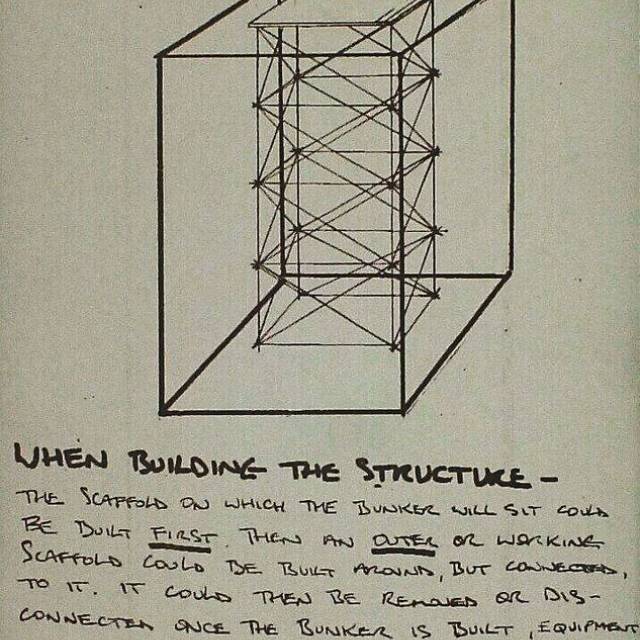 WHEN BUILDING THE STRUCTURE -
THE SCAFFOLD ON WHICH THE BUNKER WILL SIT COULD
BE BUILT FIRST. THEN AN OUTER OR WORKING
SCAFFOLD COULD BE BUILT AROUND, BUT CONNECTED,
TO IT. IT COULD THEN BE REMOVED OR DIS-
CONNECTED ONCE THE BUNKER IS BUILT, EQUIPMENT